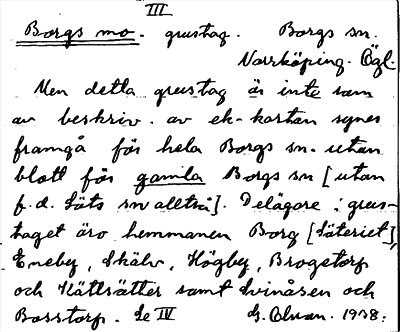 III
Borgs mo. grustag. Borgs sn.
Norrköping. Ögl.
Men detta grustag är inte som
av beskriv. av ek-kartan synes
framgå för hela Borgs sn. utan
blott för gamla Borgs sn [utan
f.d. Löts sn alltså]. Delägare i grus-
taget äro hemmanen Borg [säteriet],
Eneby, Skälv, Högby, Brogetorp
och Hättsätter samt Svinåsen och
Bosstorp. Se IV G. Olman. 1938.